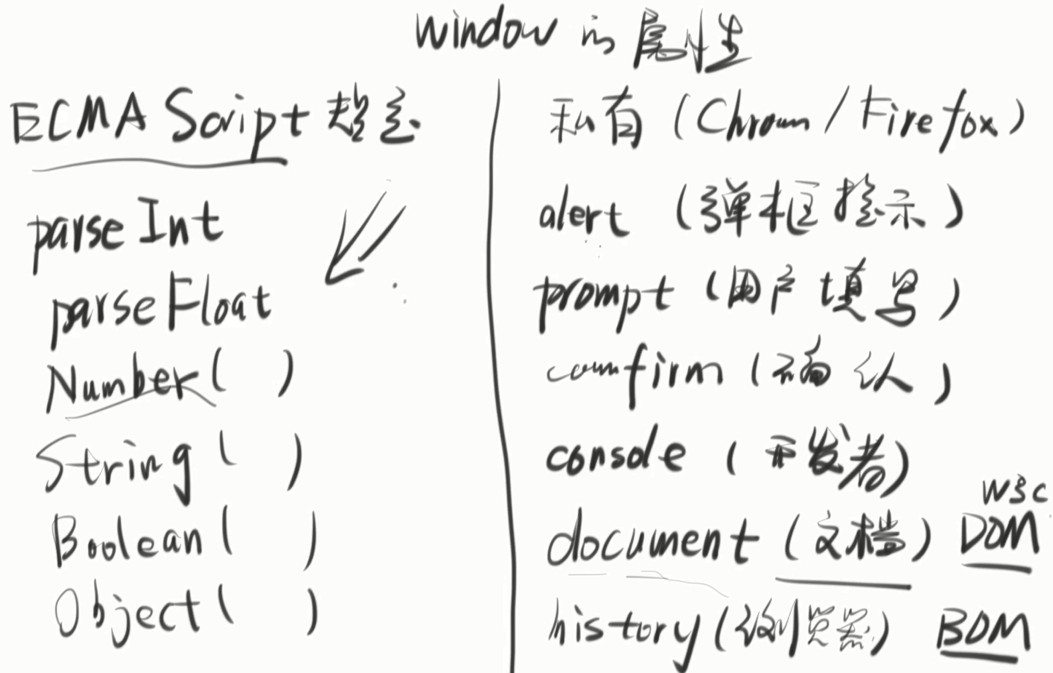 window 的属性
ECMAScript 规定
parseInt
parseFloat
Number( )
String( )
Boolean( )
Object( )
私有 (Chrom / Firefox)
alert (弹框提示)
prompt (用户填写)
comfirm (确认)
console (开发者)
W3C
document (文档) DOM
history (浏览器) BOM